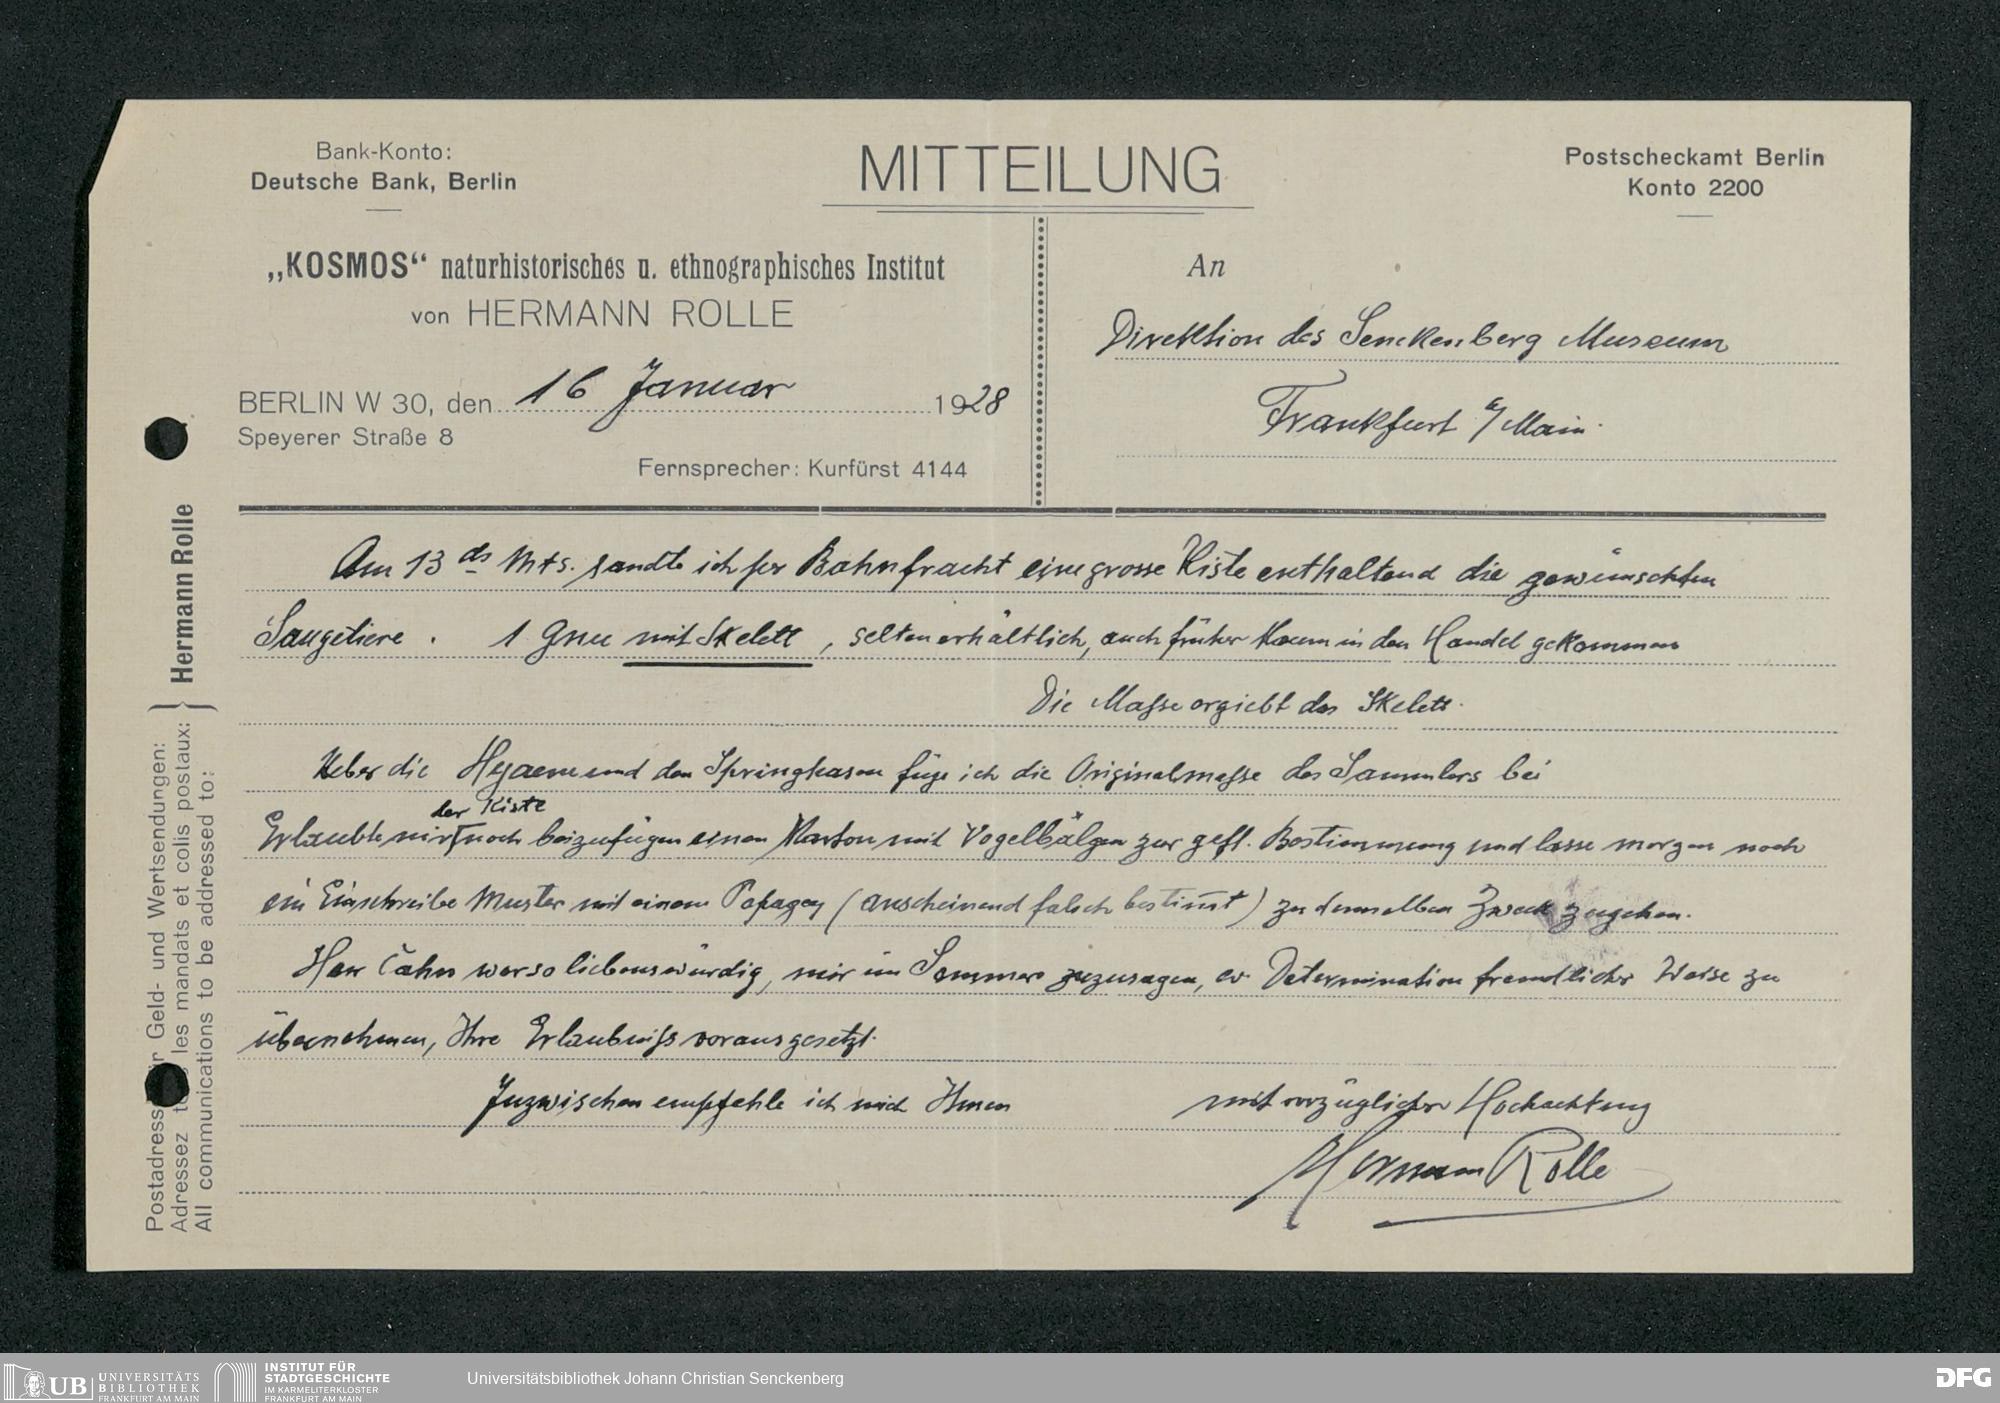 Bank-Konto:
Deutsche Bank, Berlin
MITTEILUNG
Postscheckamt Berlin
Konto 2200
„KOSMOS“ naturhistorisches u. ethnographisches Institut
von HERMANN ROLLE
BERLIN W 30, den 16 Januar 1928
Speyerer Straße 8
Fernsprecher: Kurfürst 4144
An
Direktion des Senckenberg Museum
Frankfurt a/Main.
Am 13 ds Mts. sandte ich per Bahnfracht eine grosse Kiste enthaltend die gewünschten
Säugetiere. 1 Gnu mit Skelett, selten erhältlich, auch früher kaum in den Handel gekommen
Die Masse ergiebt das Skelett.
Ueber die Hyaene und den Springhasen füge ich die Originalmasse des Sammlers bei
der Kiste
Erlaubte mir noch beizufügen einen Karton mit Vogelbälgen zur gefl. Bestimmung und lasse morgen noch
ein Einschreibe Muster mit einem Papagey (anscheinend falsch bestimt) zu demselben Zweck zugehen.
Herr Cahn war so liebenswürdig, mir im Sommer zuzusagen, ev. Determination freundlicher Weise zu
übernehmen, Ihre Erlaubniss vorausgesetzt.
Inzwischen empfehle ich mich Ihnen mit vorzüglicher Hochachtung
Hermann Rolle
Postadresse Geld- und Wertsendungen:
Adressez les mandats et colis postaux:
All communications to be addressed to:
Hermann Rolle
UB UNIVERSITÄTS
BIBLIOTHEK
FRANKFURT AM MAIN
INSTITUT FÜR
STADTGESCHICHTE
IM KARMELITERKLOSTER
FRANKFURT AM MAIN
Universitätsbibliothek Johann Christian Senckenberg
DFG